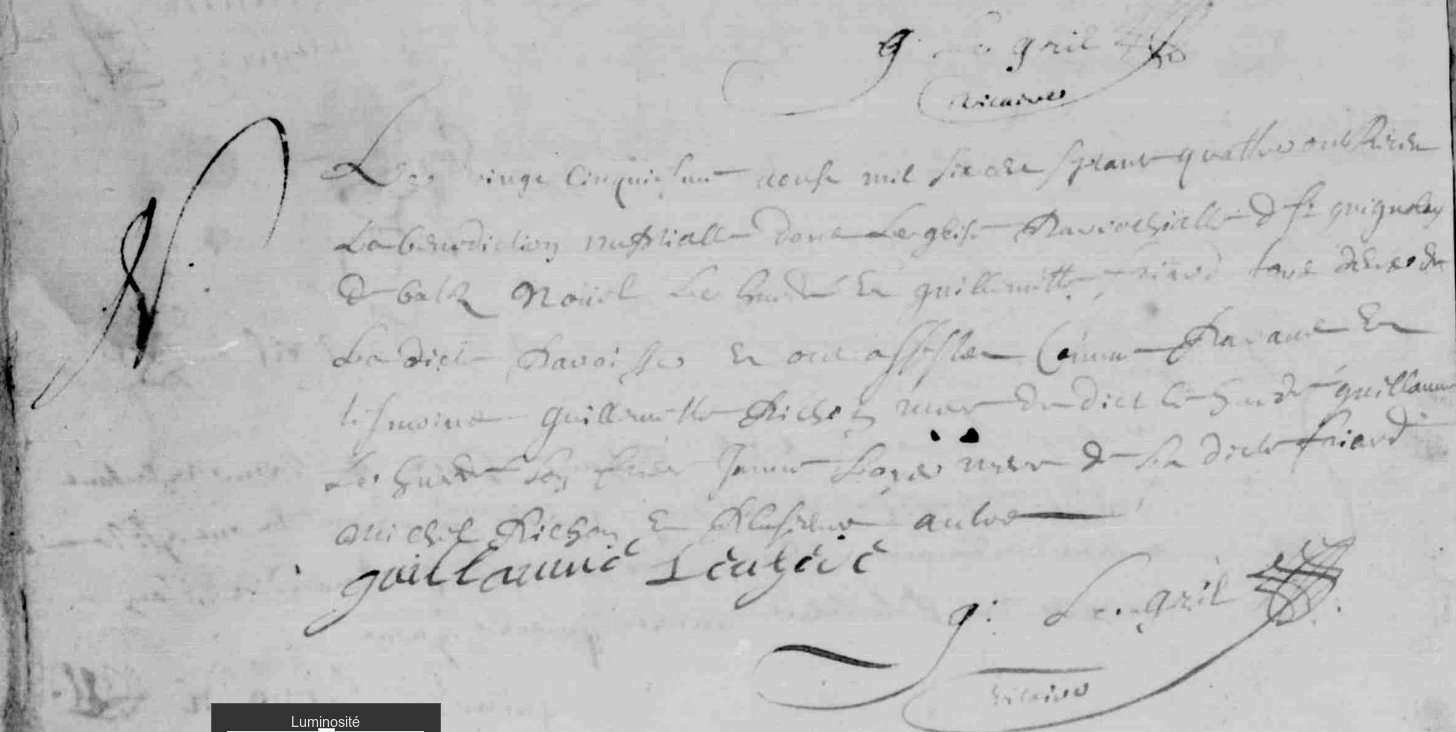 g. Le gril
vicaire
Les vingt cinquiesme aoust mil six cens septante quattre ont Receu
La benediction nuptialle dans Leglise Parrochialle de st guignolay
de batz Noüel Le huedé Et guillemette faiard tous deux de
La dicte Paroisse Et ont assisté Comme Parans Et
tesmoins guillemette Richon mere du dict le huedé guillaume
Le huedé son frere Janne mere de La dicte faiard
michel Richon Et Plusieurs autres
guillaume Lehuédé
g. Le gril
vicaire
Luminosité